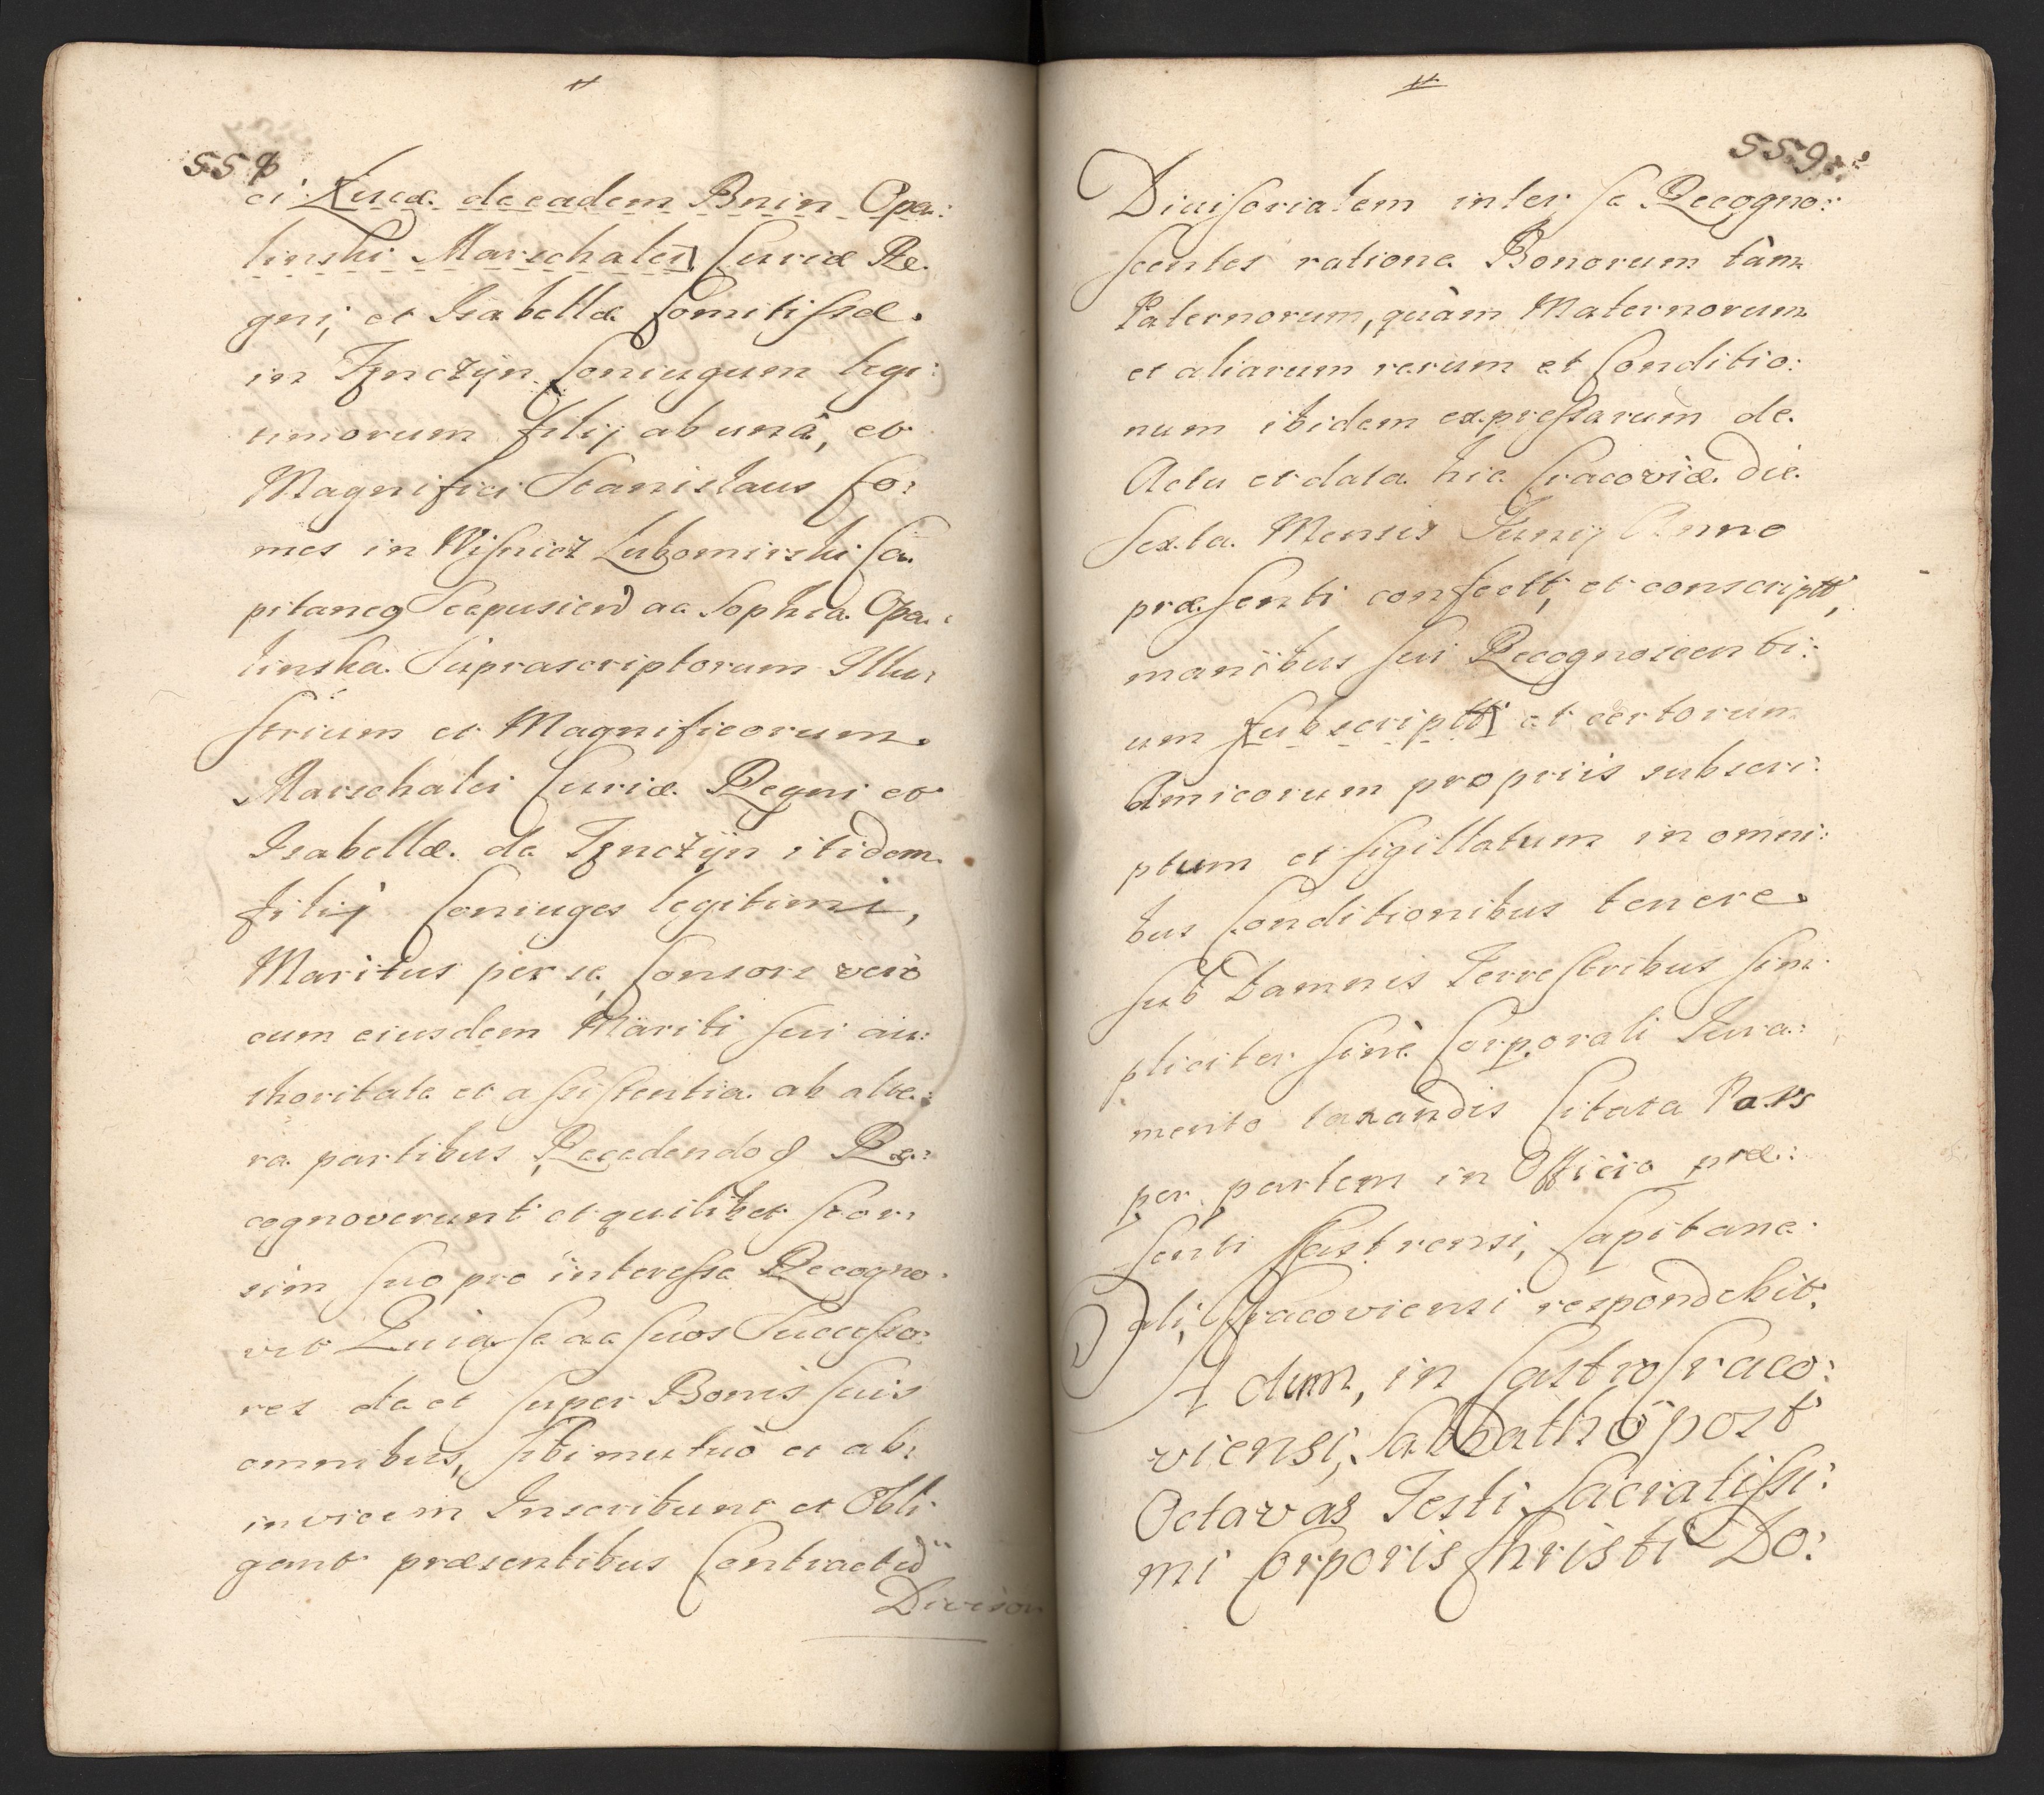 558
ci Lucæ de eadem Bnin Opa:
linski Marschalci Curiæ Re
gni, et Isabellæ Comitissæ
in Tęnczÿn Coniugum legi:
timorum filij ab unâ, et
Magnifici Stanislaus Co:
mes in Wisnicz Lubomirski Ca
pitaneg Scepusien ac Sophia Opa:
linska Suprascriptorum Illu:
strium et Magnificorum
Marschalci Curiæ Regni et
Isabellæ de Tęnczÿn itidem
filij Coniuges legitimi,
Maritus per se, Consors verò
cum eiusdem Mariti sui au:
thoritate et assistentia ab alte:
ra partibus, Recedendo Re:
cognoverunt et quilibet Seor:
sim suo pro interesse Recogno:
vit Quia se ac suos Successo:
res de et super Bonis suis
omnibus, sibi mutuò et ab:
invicem Inscribunt et Obli
gant præsentibus Contractu
Divisor
559
Diuisorialem inter se Recogno:
scentes ratione Bonorum tàm
Paternorum, quàm Maternorum
et aliarum rerum et Conditio:
num ibidem expressarum de
Actu et data hic Cracoviæ die
sexta Mensis Junij Anno
præsenti confectt, et conscriptt,
manibus sui Recognoscenti:
um subscriptt et certorum
Amicorum propriis subscri:
ptum et sigillatum in omni:
bus Conditionibus tenere
sub Damnis Terrestribus sim
pliciter sinè Corporali Jura:
mento taxandis Citata Pars
per partem in Officio præ:
senti Castrensi, Capitane
ali, Cracoviensi respondebit.
Actum, in Castro Craco:
viensi, Sabbatho post
Octavas Festi Sacratissi:
mi Corporis Christi Do: